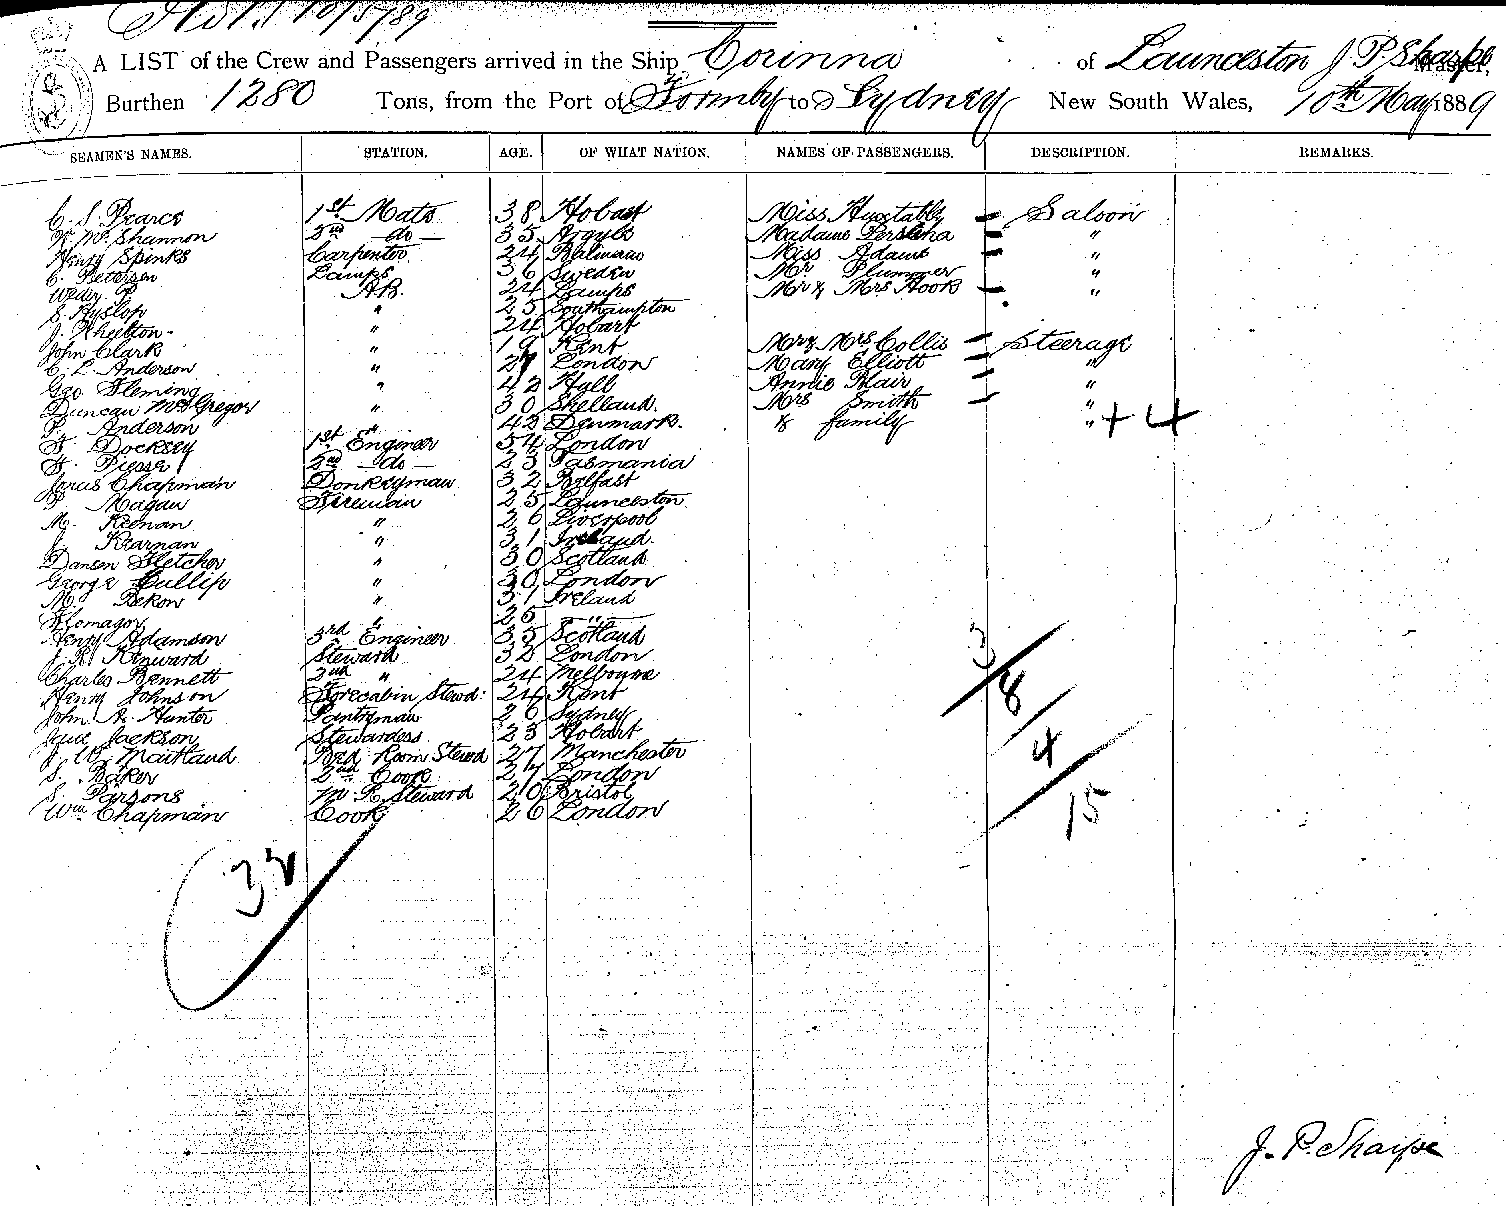 10/5/89
A LIST of the Crew and Passengers arrived in the Ship Corinna of Launceston J P Sharpe Master,
Burthen 1280 Tons, from the Port of Formby to Sydney New South Wales, 10th May 1889
SEAMEN'S NAMES. STATION. AGE. OF WHAT NATION. NAMES OF PASSENGERS. DESCRIPTION. REMARKS.
C. S. Pearce 1st Mate 38 Hobart Miss Huxtable — Saloon
W. Mc. Shannon 2nd — do — 35 Argyle Madame — "
Henry Spinks Carpenter 24 Balmain Miss Adams — "
C. Petersen Lamps 36 Sweden Mr Plummer "
AB. 24 Lamps Mr & Mrs Hook — "
S. Hyslop " 25 Southampton
J. " 24 Hobart
John Clark " 19 Kent Mr & Mrs Collis — Steerage
C. L. Anderson " 27 London Mary Elliott — "
Geo Fleming " 42 Hull Annie Blair — "
Duncan McGregor " 30 Mrs Smith — "
P. Anderson " 42 Denmark. & family " + 4
F. Docksey 1st Engineer 54 London
F. Piesse 2nd — do — 23 Tasmania
Chapman Donkeyman 32 Belfast
P. Magan Fireman 25 Launceston
M. Keenan " 26 Liverpool
J. Kearnan " 31 Ireland.
Fletcher " 30 Scotland
George Cullip " 30 London
M. " 31 Ireland
" 25 — " —
Henry Adamson 3rd Engineer 35 Scotland
J. R. Kenward Steward 32 London
Charles Bennett 2nd " 24 Melbourne
Henry Johnson Forecabin Stewd: 24 Kent
John A. Hunter Pantryman 20 Sydney
Jackson Stewardess 23 Hobart
J. W. Maitland Bed Room Stewd 27 Manchester
S. Baker 2nd Cook 27 London
S. Parsons M R Steward 20 Bristol
Wm Chapman Cook 26 London
3/
8/
4/
15
32
J. P. Sharpe